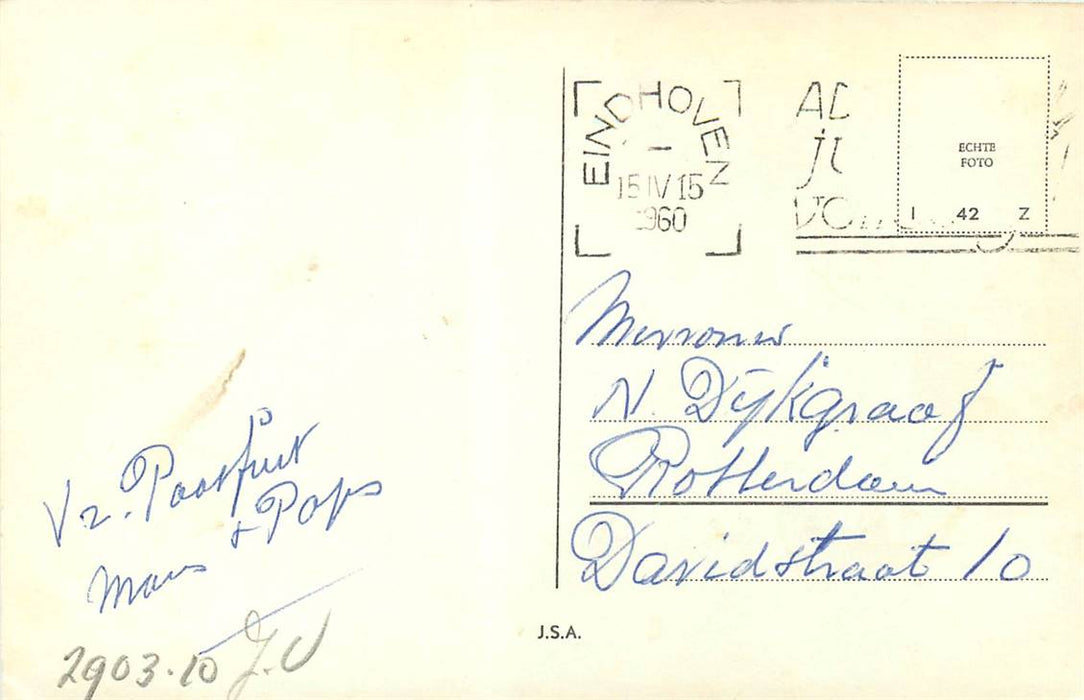 EINDHOVEN
15 IV 15
1960
ECHTE
FOTO
I 42 Z
Mevrouw
N. Dijkgraaf
Rotterdam
Davidstraat 10
Vr. Paasfeest
Mams + Pops
J.S.A.
2903.10 J.U